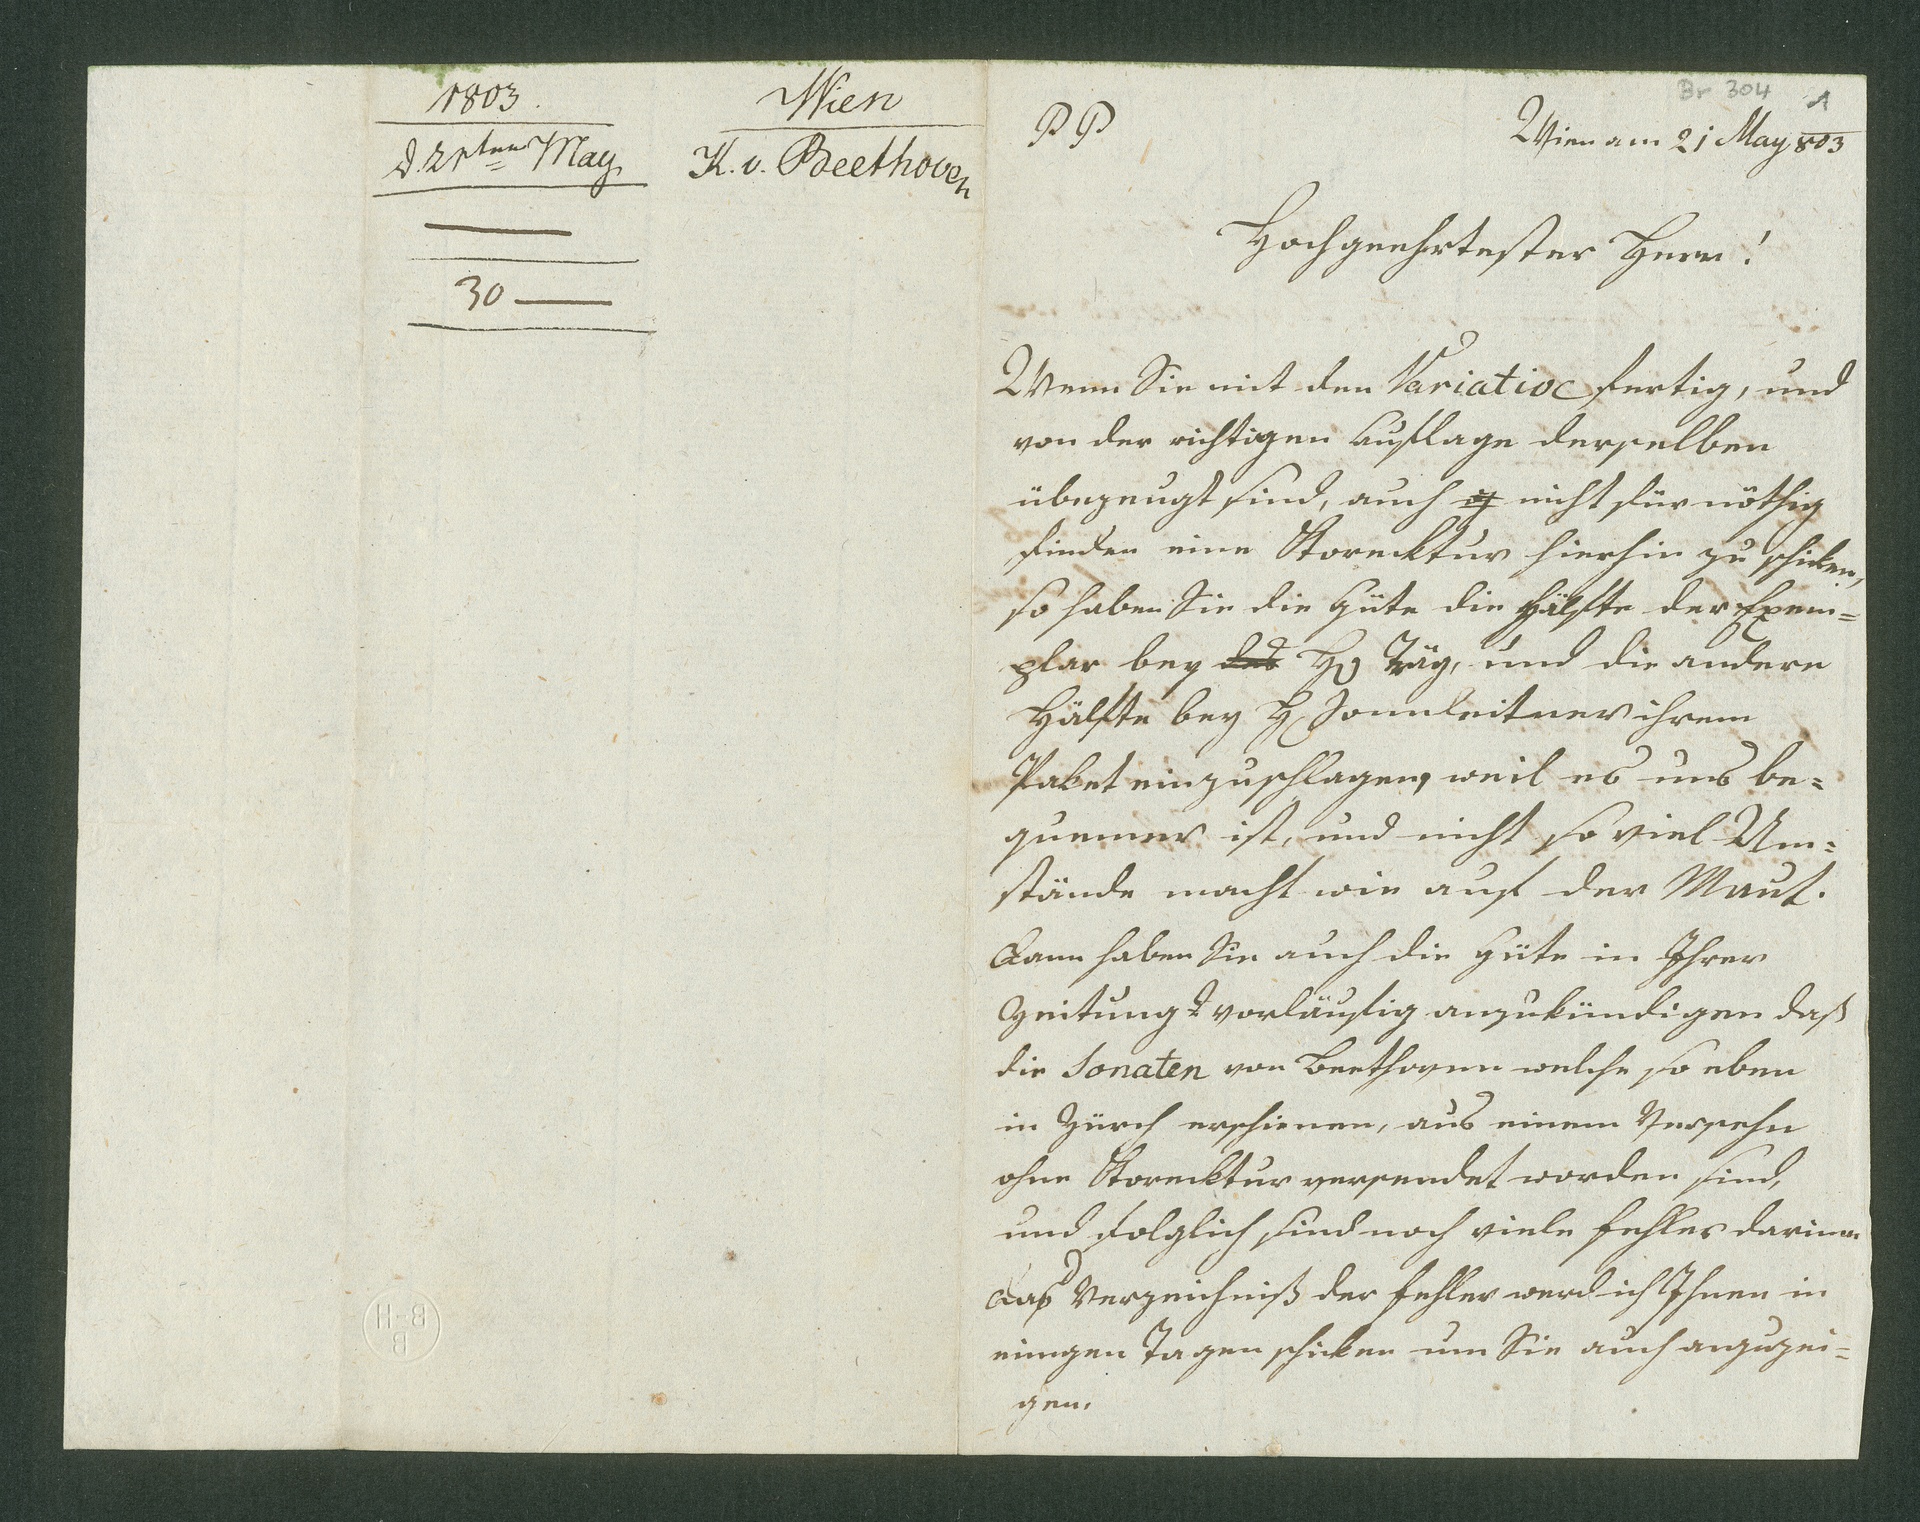 1803.
d. 21ten May
30
Wien
K. v. Beethoven
Br 304
1
PP
Wien am 21 May 803
Hochgeehrtester Herr!
Wenn Sie mit den Variatio fertig, und
von der richtigen Auflage derselben
übezeugt sind, auch nicht für nöthig
finden eine Korecktur hierhin zu schicken,
so haben Sie die Güte die Hälfte der Exem=
plar bey das H. Träg, und die andere
Hälfte bey H. Sonnleitner ihrem
Paket einzuschlagen, weil es uns be=
quemer ist, und nicht so viel Um=
stände macht wie auf der Maut.
Dann haben Sie auch die Güte in Ihrer
Zeitung vorläufig anzukündigen daß
die Sonaten von Beethoven welche so eben
in Zürch erschienen, aus einem Versehn
ohne Korecktur versendet worden sind,
und folglich sind noch viele fehler darinn
Das Verzeichniß der fehler werd ich Ihnen in
einigen Tagen schicken um Sie auch anzuzei=
gen.
B-H
B